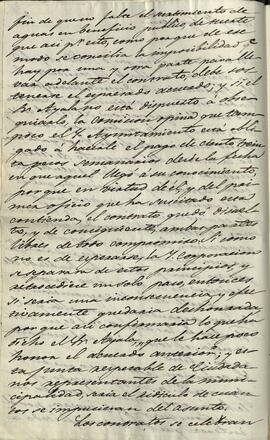 fin de que no falte el nacimiento de
aguas en beneficio público de suerte
que así pues, como porque de ese
modo se concilia la imposibilidad q.e
hay por una y otra parte para lle-
var adelante el contrato, debe sos-
tenerse el expresado acuerdo; y si, el
Sr. Ayala no está dispuesto a obse-
quiarlo, la comisión opina que tam-
poco el Y. Ayuntamiento está obli-
gado a hacerle el pago de ciento treinta
pesos semanarios desde la fecha
en que aquel llegó a su conocimiento,
porque en virtud de él, y del pri-
mer oficio que ha suscitado esta
contienda, el contrato quedó disuel-
to, y de consiguiente ambas partes
libres de todo compromiso. Si como
no es de esperarse, la Y. Corporación
se separara de estos principios, y
retrocediere un solo paso, entonces
sí sería una inconsecuencia y efec-
tivamente quedaría deshonrada,
porque así confirmaría lo que ha
dicho el Sr. Ayala, que le hace poco
honor el acuerdo anterior; y es-
ta junta respetable de ciudada-
nos representantes de la muni-
cipalidad, sería el ridículo de cuan-
tos se impusieran del asunto.
Los contratos se celebran